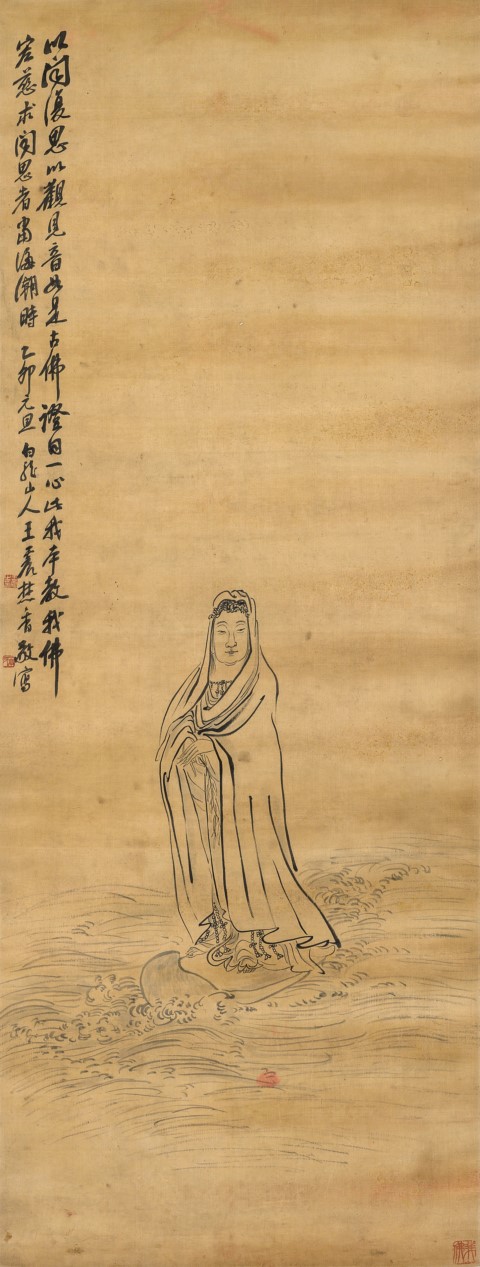 以聞復思以觀見音如是古佛證自一心此我本教我佛
宏慈求聞思者當海潮時 乙卯元旦白龍山人王震焚香敬寫